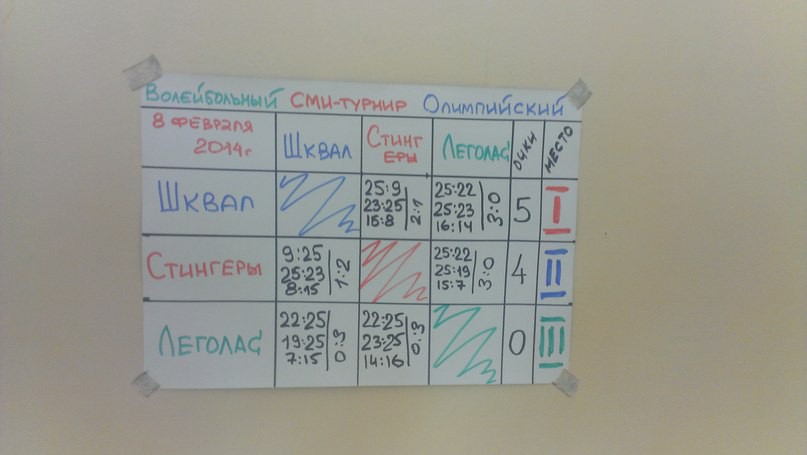 Волейбольный СМИ-турнир Олимпийский
8 февраля 2014г Шквал Стингеры Леголас очки место
Шквал 25:9 23:25 15:8 2:1 25:22 25:23 16:14 3:0 5 I
Стингеры 9:25 25:23 8:15 1:2 25:22 25:19 15:7 3:0 4 II
Леголас 22:25 19:25 7:15 0:3 22:25 23:25 14:16 0:3 0 III